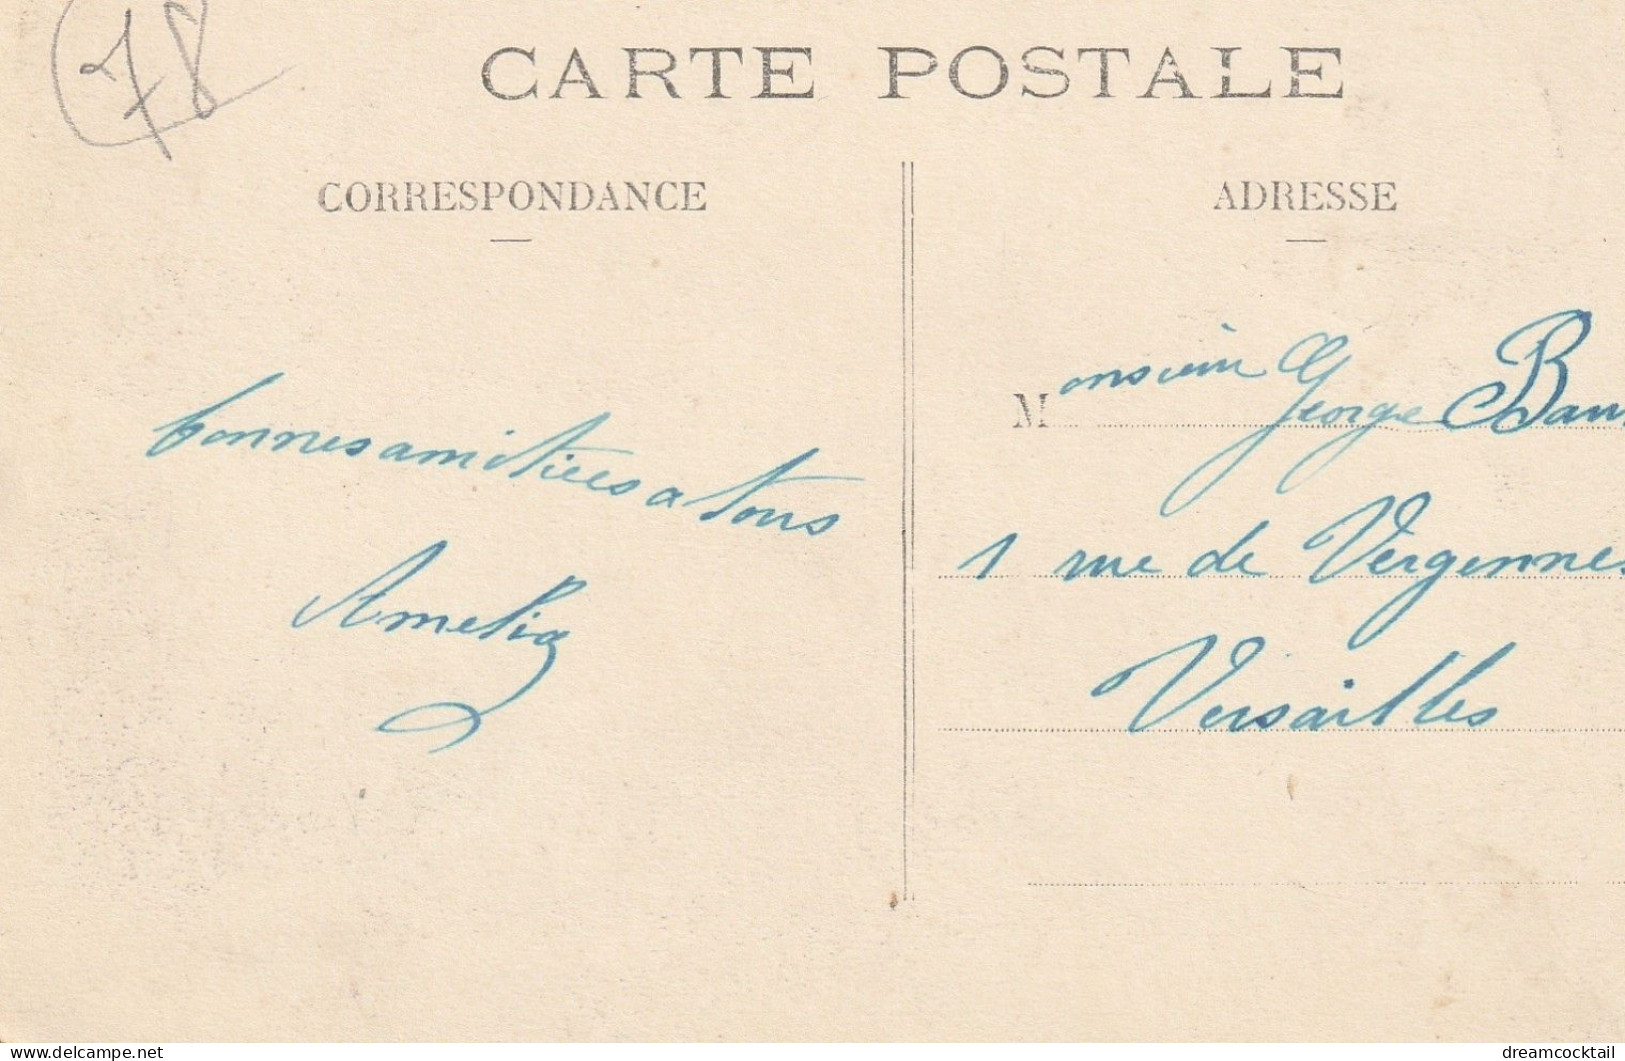 78
CARTE POSTALE
CORRESPONDANCE
ADRESSE
bonnes amitiees a tous
Amelia
Monsieur George
1 rue de Vergennes
Versailles
delcampe.net
dreamcocktail